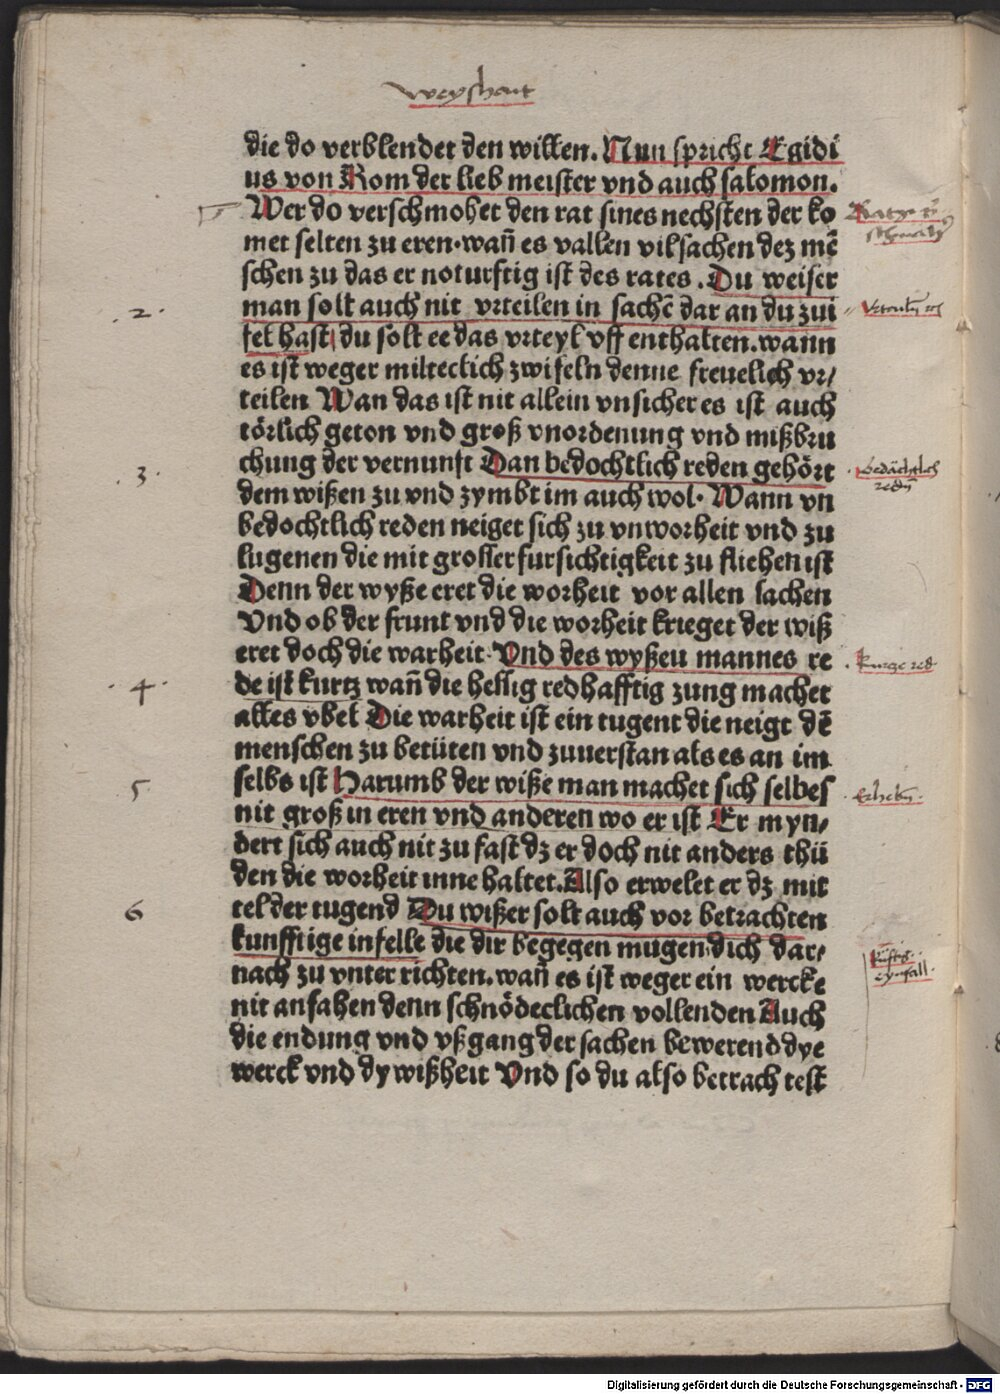 weyshait
die do verblendet den willen. Nun spricht Egidi
us von Rom der lieb meister vnd auch salomon.
Wer do verschmohet den rat sines nechsten der ko
met selten zu eren. wañ es vallen vil sachen dez mē
schen zu das er noturftig ist des rates. Du weiser
man solt auch nit vrteilen in sachē dar an du zwi
2.
fel hast, du solt ee das vrteyl vff enthalten. wann
es ist weger milteclich zwifeln denne freuelich vr/
teilen Wan das ist nit allein vnsicher es ist auch
törlich geton vnd groß vnordenung vnd mißbru
chung der vernunft Dan bedochtlich reden gehört
3
bedächtlich
redn
dem wißen zu vnd zymbt im auch wol. Wann vn
bedochtlich reden neiget sich zu vnworheit vnd zu
lugenen die mit grosser fursichtigkeit zu fliehen ist
Denn der wyße eret die worheit vor allen sachen
Vnd ob der frunt vnd die worheit krieget der wiß
eret doch die warheit. Vnd des wyßeu mannes re
kurze red
de ist kurtz wañ die hessig redhafftig zung machet
4
alles vbel Die warheit ist ein tugent die neigt dē
menschen zu betüten vnd zuuerstan als es an im
selbs ist Harumb der wiße man machet sich selbes
5
nit groß in eren vnd anderen wo er ist Er myn/
dert sich auch nit zu fast dz er doch nit anders thü
den die worheit inne haltet. Also erwelet er dz mit
tel der tugend Du wißer solt auch vor betrachten
6
kunfftige infelle die dir begegen mugen dich dar/
kuftig
eynfall.
nach zu vnter richten. wañ es ist weger ein wercke
nit anfahen denn schnödeclichen vollenden Auch
die endung vnd vßgang der sachen bewerend dye
werck vnd dy wißheit Vnd so du also betrach test
Digitalisierung gefördert durch die Deutsche Forschungsgemeinschaft - DFG